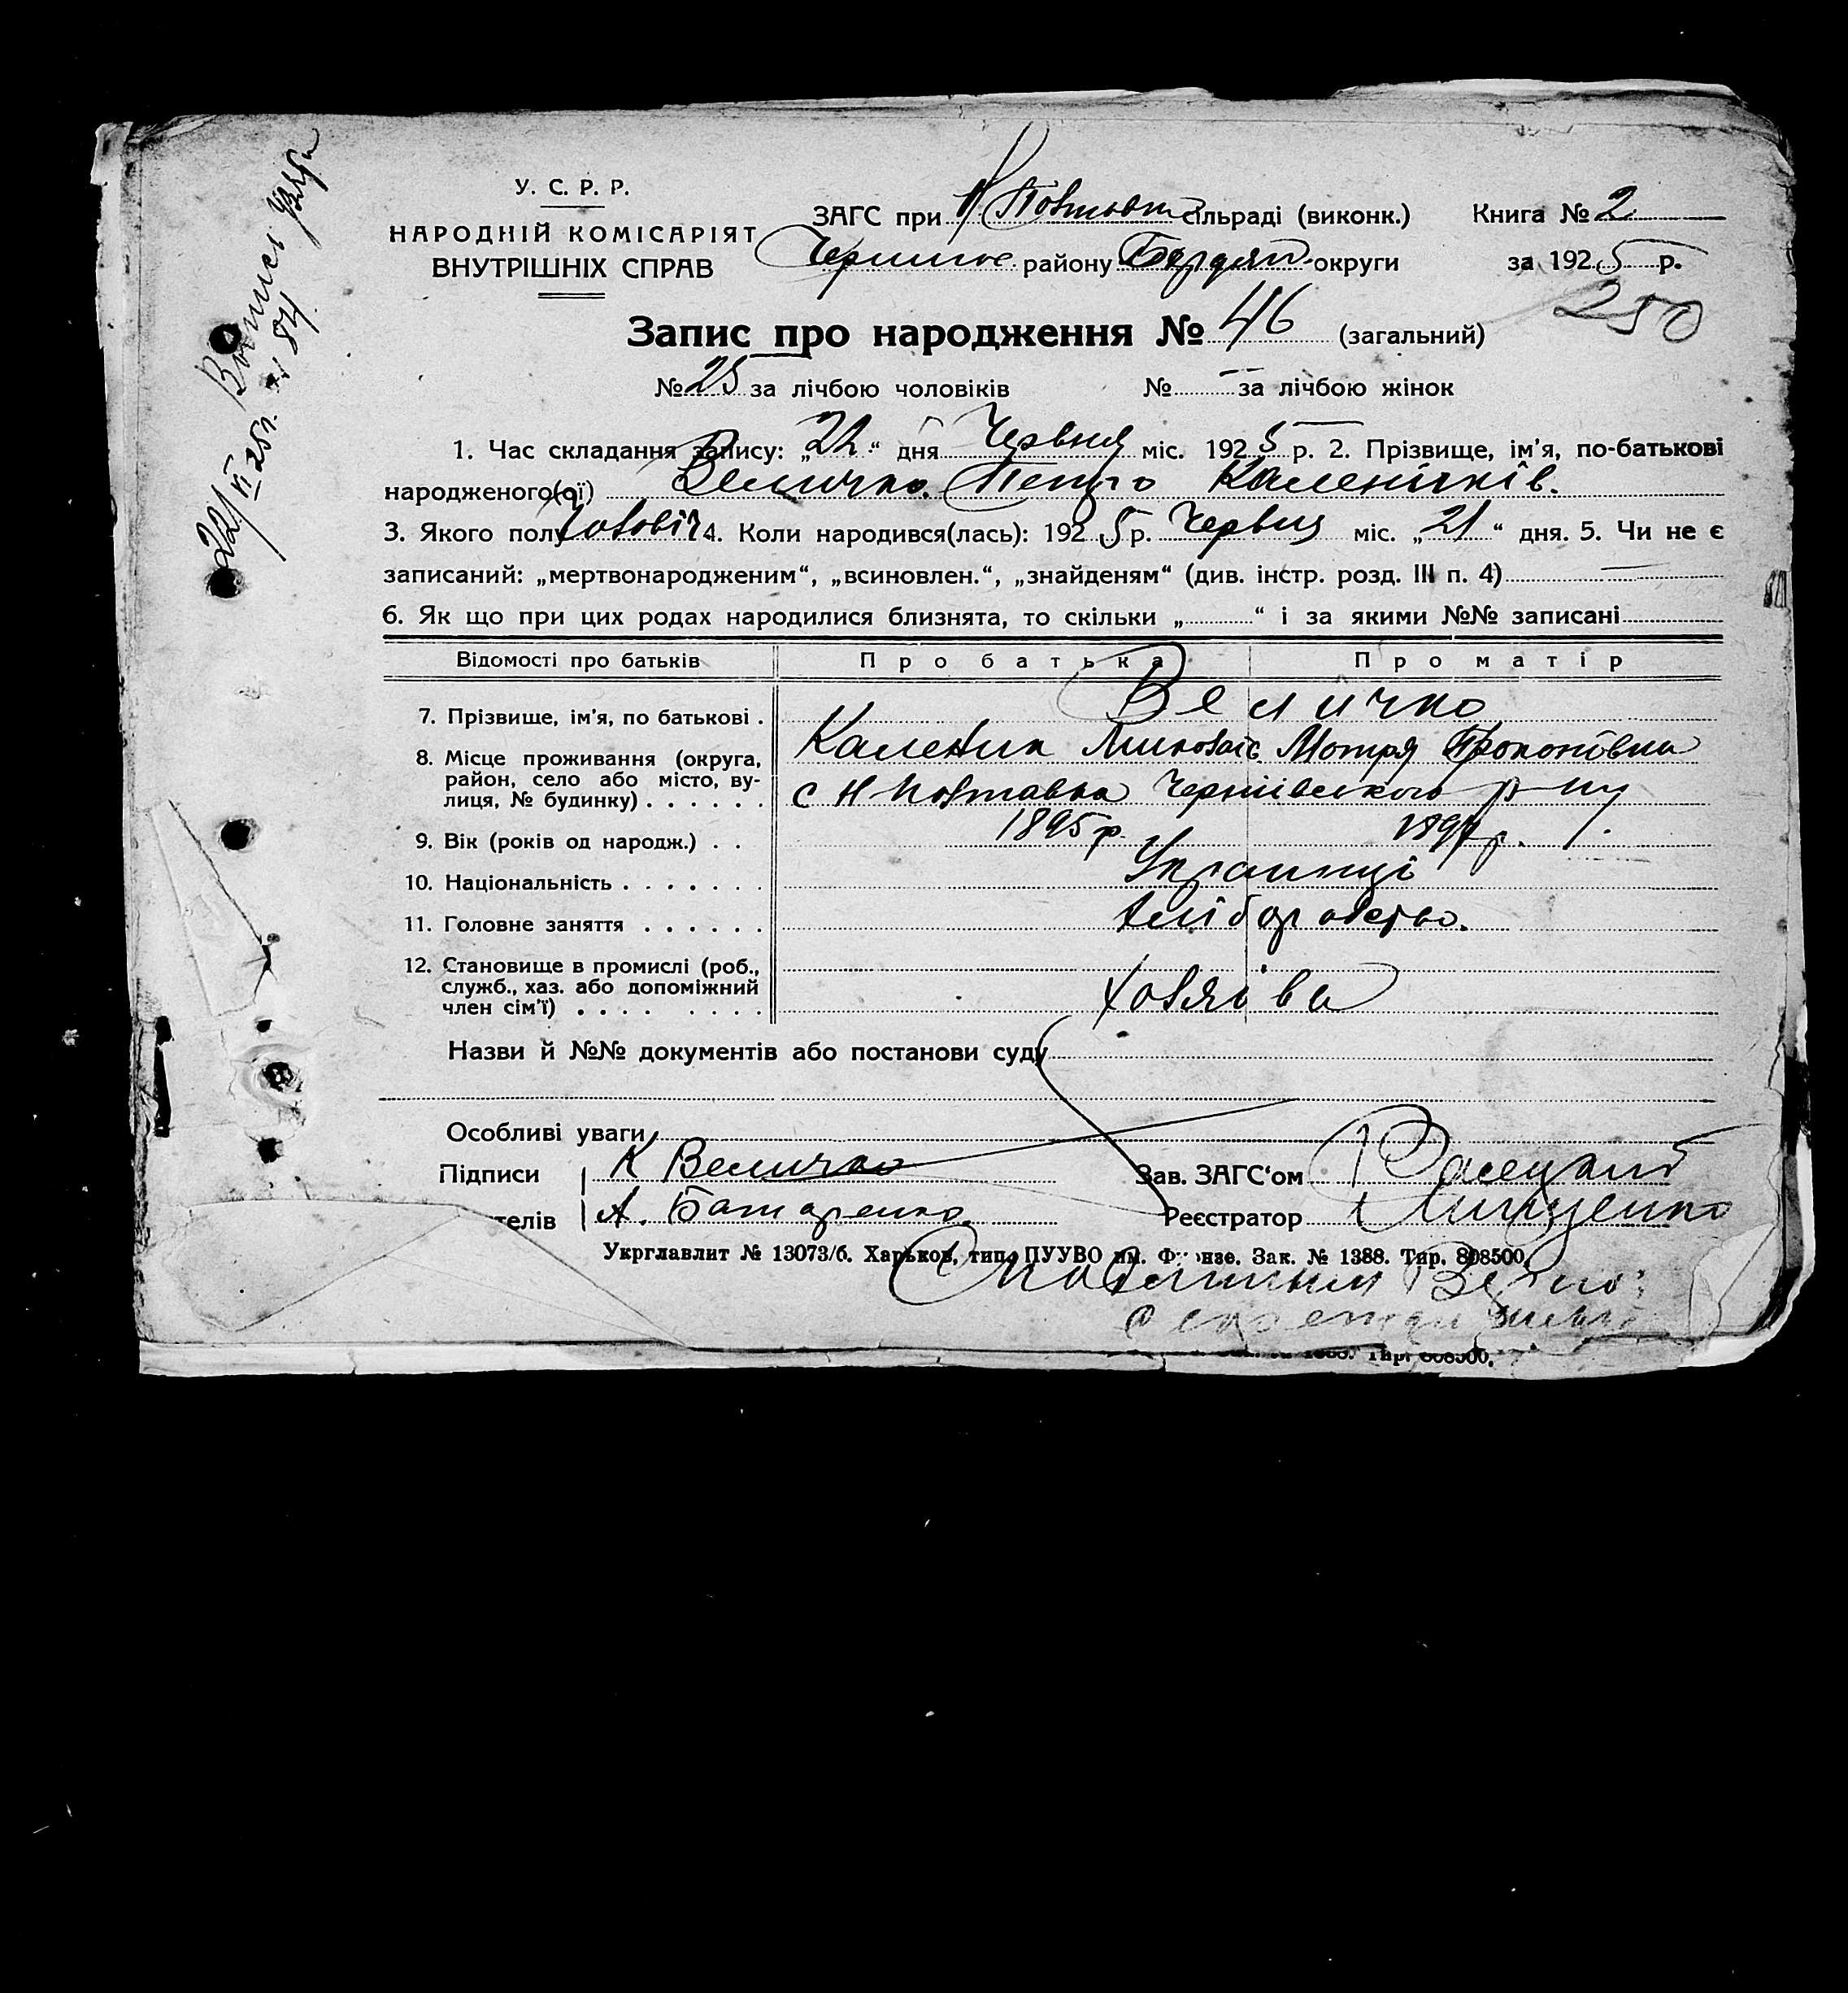 У. С. Р. Р.
НАРОДНІЙ КОМІСАРІЯТ
ВНУТРІШНІХ СПРАВ
ЗАГС при Н Повтавк сільраді (виконк.)
району Бердян округи
Книга № 2
за 1925 р.
250
Запис про народження № 46 (загальний)
№ 25 за лічбою чоловіків № — за лічбою жінок
1. Час складання запису: „22“ дня Червня міс. 1925 р. 2. Прізвище, ім'я, по-батькові
народженого(ої) Величко Петро Калеників.
3. Якого полу чоловіч 4. Коли народився(лась): 1925 р. Червня міс. „21“ дня. 5. Чи не є
записаний: „мертвонародженим“, „всиновлен.“, „знайденям“ (див. інстр. розд. III п. 4) —
6. Як що при цих родах народилися близнята, то скільки „ “ і за якими №№ записані
Відомості про батьків Про батька Про матір
7. Прізвище, ім'я, по батькові . Величко
Каленик Мотря Прокопівна
8. Місце проживання (округа,
район, село або місто, ву-
лиця, № будинку) . . . . . . с Н Повтавка Чернівського р-ну
9. Вік (років од народж.) . . 1895 р.
10. Національність . . . . . . . Украинці
11. Головне заняття . . . . . . Хліборобство.
12. Становище в промислі (роб.,
служб., хаз. або допоміжний
член сім'ї) . . . . . . . . Хозяїва
Назви й №№ документів або постанови суду
Особливі уваги
Підписи К Величко Зав. ЗАГС'ом
телів А. Реєстратор Лищенко
Укрглавлит № 13073/б. Харьков, тип. ПУУВО им. Фрунзе. Зак. № 1388. Тир. 808500
С
22/VI 25 р. № 84
Тир. 808500.